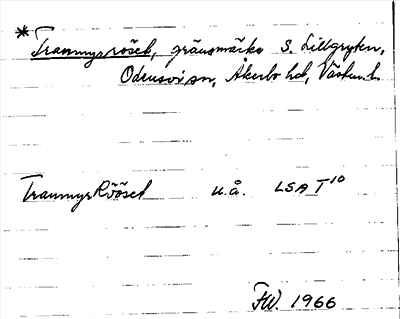 * Tranmyrröset, gränsmärke S. Lillgryten,
Odensvi sn, Åkerbo hd, Västm.l.
Tranmyr Rööset u.å. LSA T 10
FW. 1966